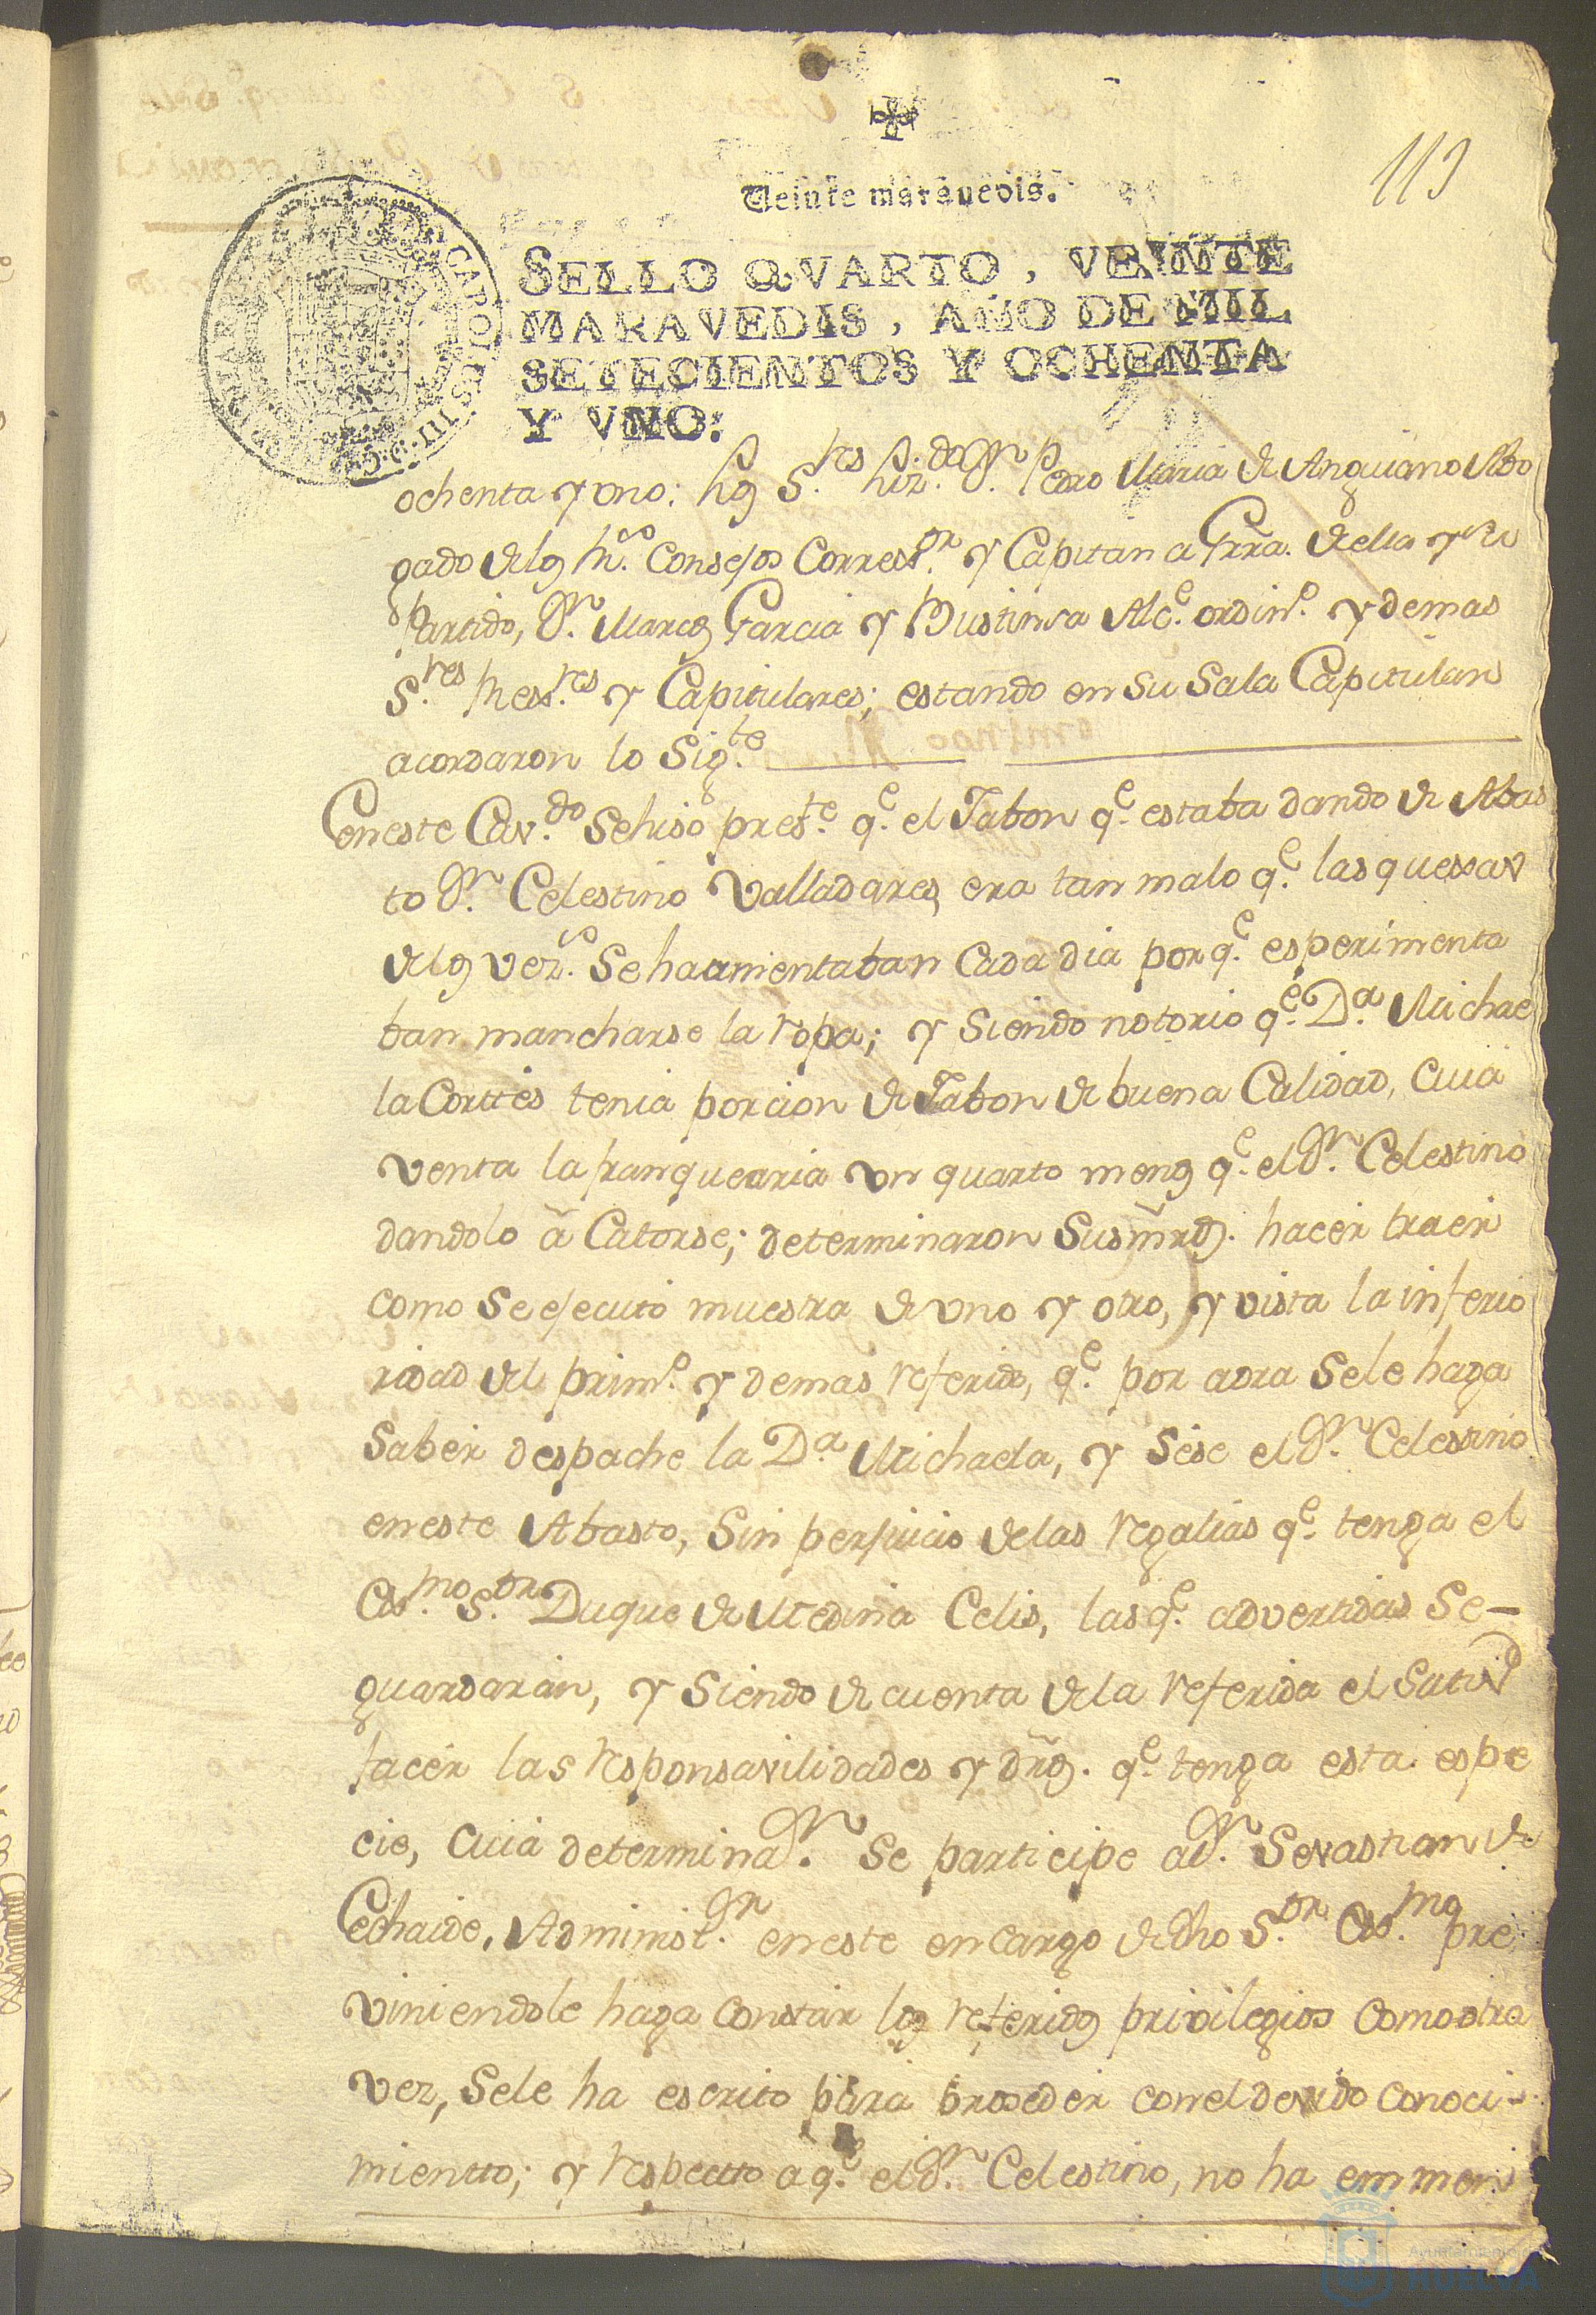 113
Veinte maravedis.
SELLO QVARTO, VEINTE
MARAVEDIS, AÑO DE MIL
SETECIENTOS Y OCHENTA
Y VNO.
CAROLUS III D G
ochenta y vno: los S.res liz.do D.n Pedro Maria de Anguiano Abo
gado de los R.s Consejos Correx.or y Capitan a Grra. de ella y su
Partido, D.n Marcos Garcia y Bustinsa Alc.e ordin.o y demas
S.res Rex.res y Capitulares; estando en su Sala Capitular
acordaron lo Sig.te
En este Cav.do Sehiso pres.te q.e el Jabon q.e estaba dando de Abas
to D.n Celestino Valladares, era tan malo q.e las quexas
de los vez.s Se haumentaban Cada dia por q.e esperimenta
ban mancharse la ropa; y Siendo notorio q.e D.a Michae
la Corttes tenia porcion de Jabon de buena Calidad, Cuia
venta la franquearia vn quarto menos q.e el D.n Celestino
dandolo â Catorse; determinaron Susmrds. hacer traer
como Se ejecutó muestra de vno y otro, y vista la inferio
ridad del prim.o y demas referido, q.e por aora Sele haga
Saber despache la D.a Michaela, y Sése el D.n Celestino
en este Abasto, Sin perjuicio de las regalias q.e tenga el
Ex.mo S.or Duque de Medina Celis, las q.e advertidas Se-
guardarán, y Siendo de cuenta de la referida el Satis
facer las responsavilidades y dros. q.e tenga esta espe
cie, Cuia determina.on Se participe a D.n Sevastian de
Echaide, Administ.or en este encargo de dho S.or Ex.mo pre
viniendole haga Constar los referidos privilegios Como otra
vez, Sele ha escrito para proceder con el devido Conoci-
mientto; y respecto a q.e el D.n Celestino, no ha emmen
Ayuntamiento
HUELVA